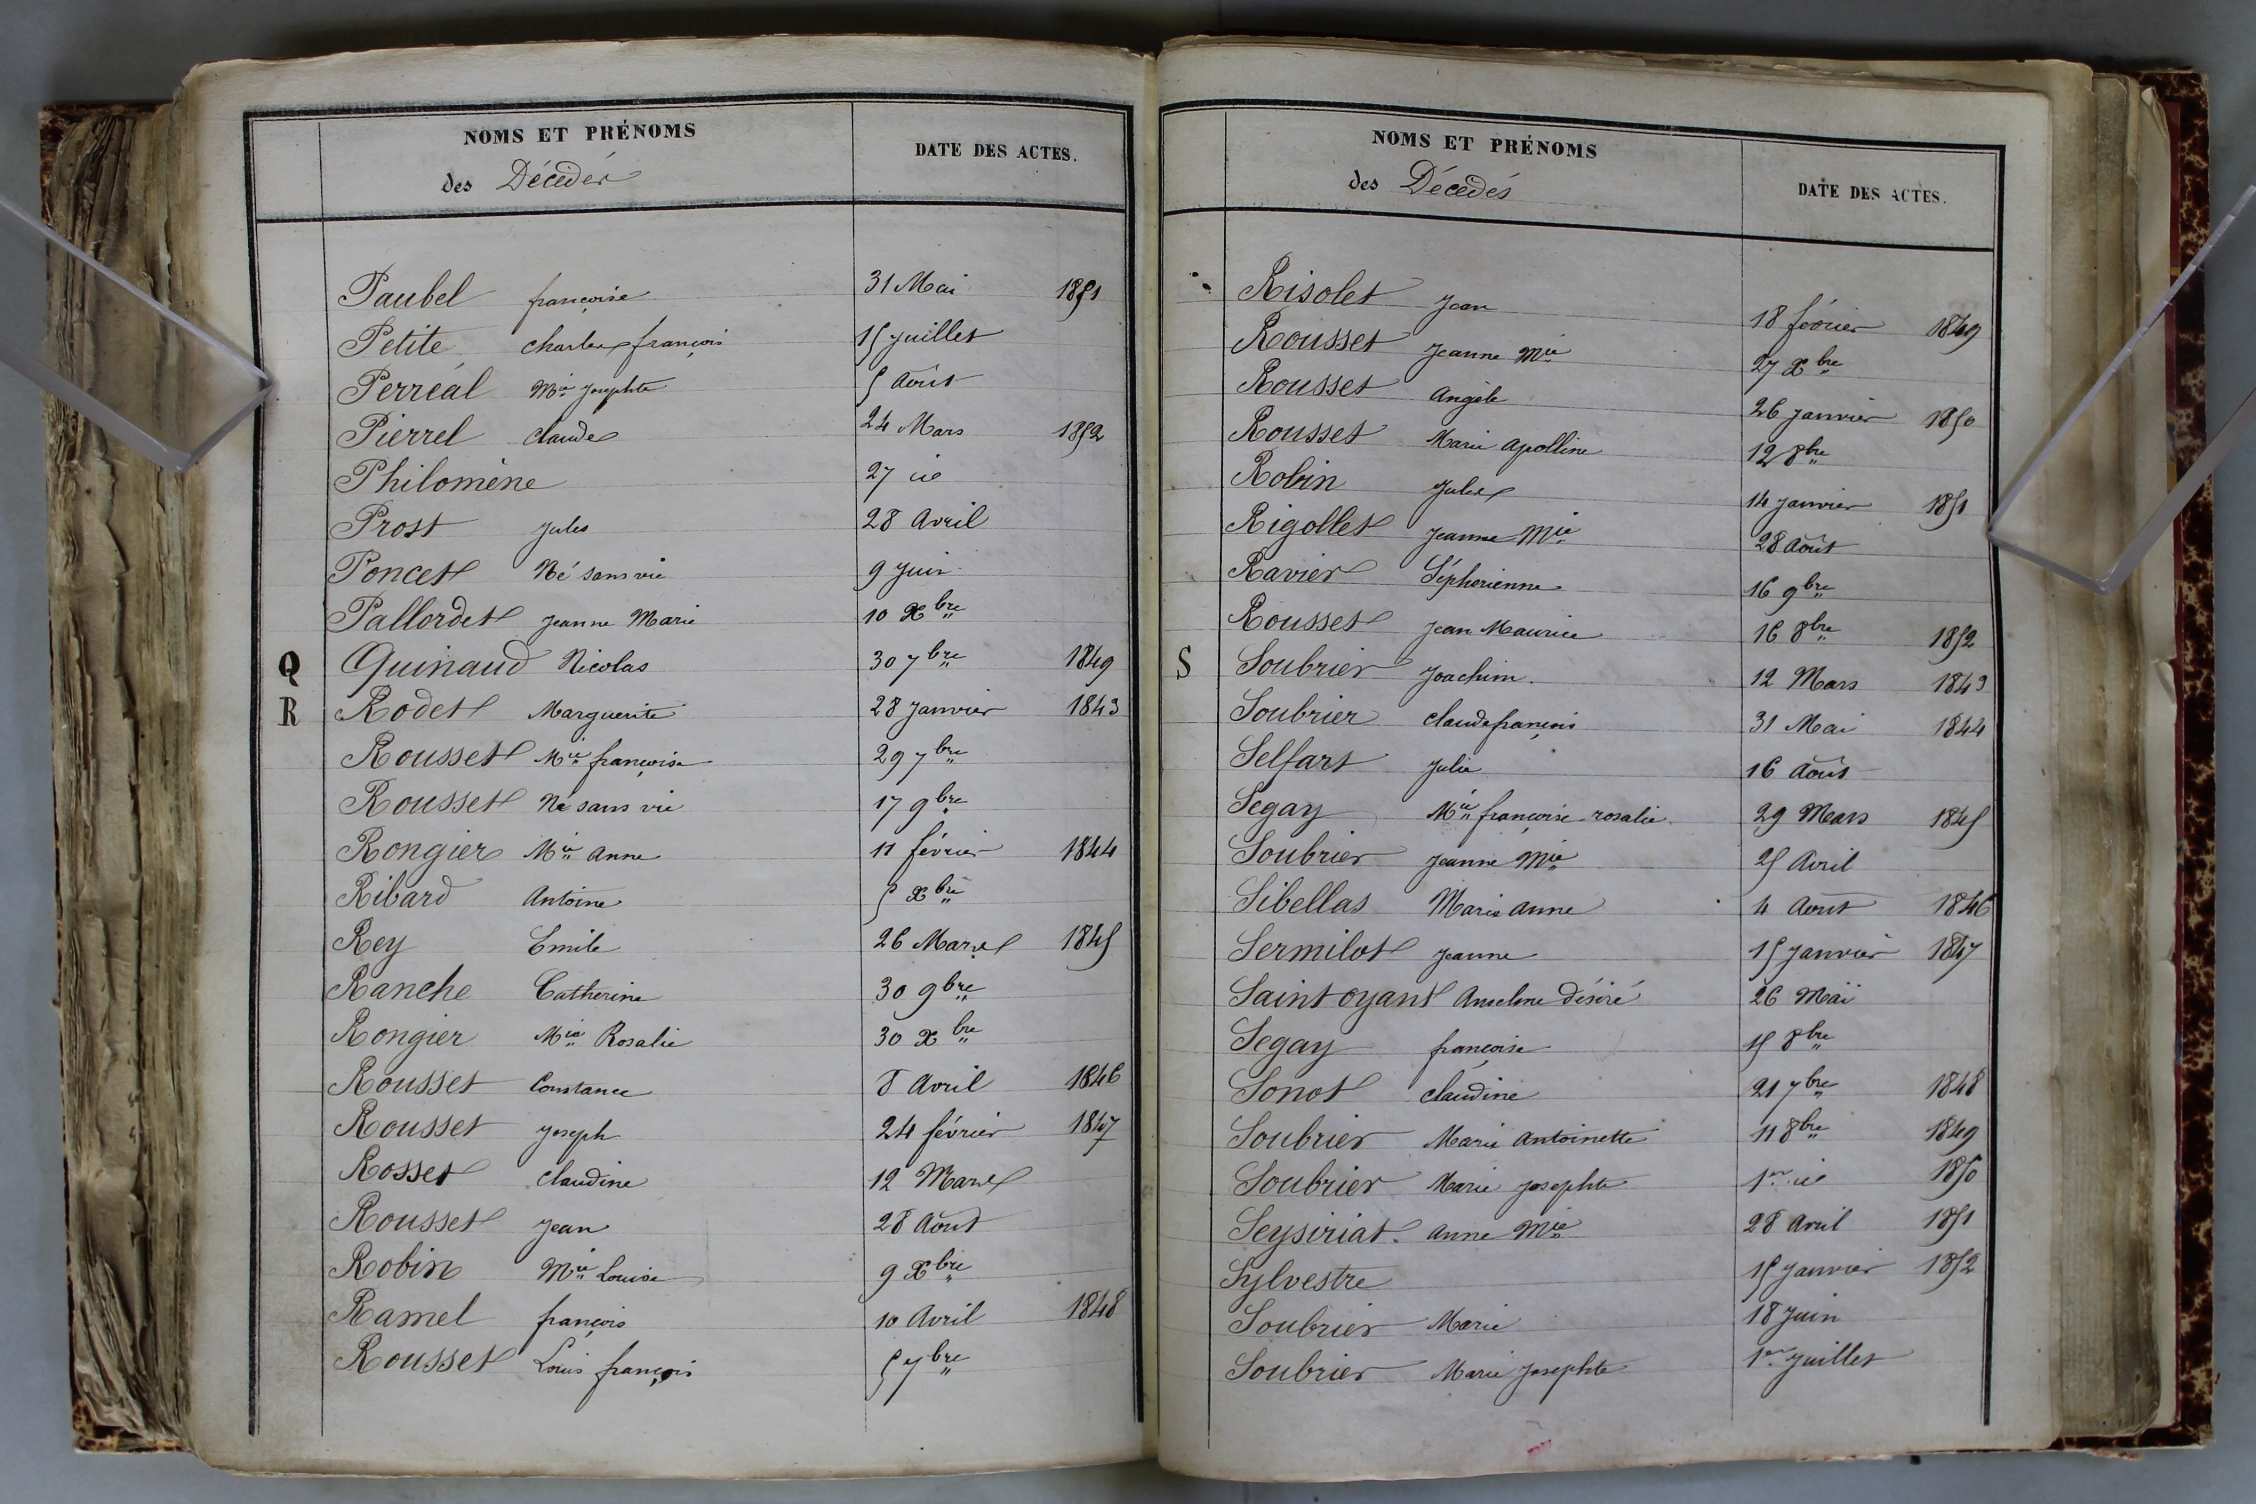 NOMS ET PRÉNOMS
des Décédés
DATE DES ACTES.
Paubel françoise 31 Mai 1851
Petite Charles françois 15 juillet
Perréal Mie Josephte 5 Août
Pierrel Claude 24 Mars 1852
Philomène 27 ie
Prost Jules 28 Avril
Poncet Né sans vie 9 Juin
Pallordet Jeanne Marie 10 Xbre
Q Quinaud Nicolas 30 7bre 1849
R Rodet Marguerite 28 Janvier 1843
Rousset Mie françoise 29 7bre
Rousset Né sans vie 17 9bre
Rongier Mie Anne 11 février 1844
Ribard Antoine 5 Xbre
Rey Emile 26 Mars 1845
Ranche Catherine 30 9bre
Rongier Mie Rosalie 30 Xbre
Rousset Constance 8 Avril 1846
Rousset Joseph 24 février 1847
Rosset Claudine 12 Mars
Rousset Jean 28 Août
Robin Mie Louise 9 Xbre
Ramel françois 10 Avril 1848
Rousset Louis françois 5 7bre
NOMS ET PRÉNOMS
des Décédés
DATE DES ACTES.
Risolet Jean 18 février 1849
Rousset Jeanne Mie 27 Xbre
Rousset Angèle 26 Janvier 1850
Rousset Marie Apolline 12 8bre
Robin Jules 14 Janvier 1851
Rigollet Jeanne Mie 28 Août
Ravier Séphorienne 16 9bre
Rousset Jean Maurice 16 8bre 1852
S Soubrier Joachim. 12 Mars 1843
Soubrier Claude françois 31 Mai 1844
Selfart Julie 16 Août
Segay Mie françoise rosalie 29 Mars 1845
Soubrier Jeanne Mie 25 Avril
Sibellas Marie Anne 4 Aout 1846
Sermilot Jeanne 15 Janvier 1847
Saint oyant Anselme Désiré 26 Mai
Segay françoise 15 8bre
Sonot Claudine 21 7bre 1848
Soubrier Marie Antoinette 11 8bre 1849
Soubrier Marie Josephte 1er ie 1850
Seysiriat. Anne Mie 28 Avril 1851
Sylvestre 15 Janvier 1852
Soubrier Marie 18 Juin
Soubrier Marie Josephte 1er Juillet